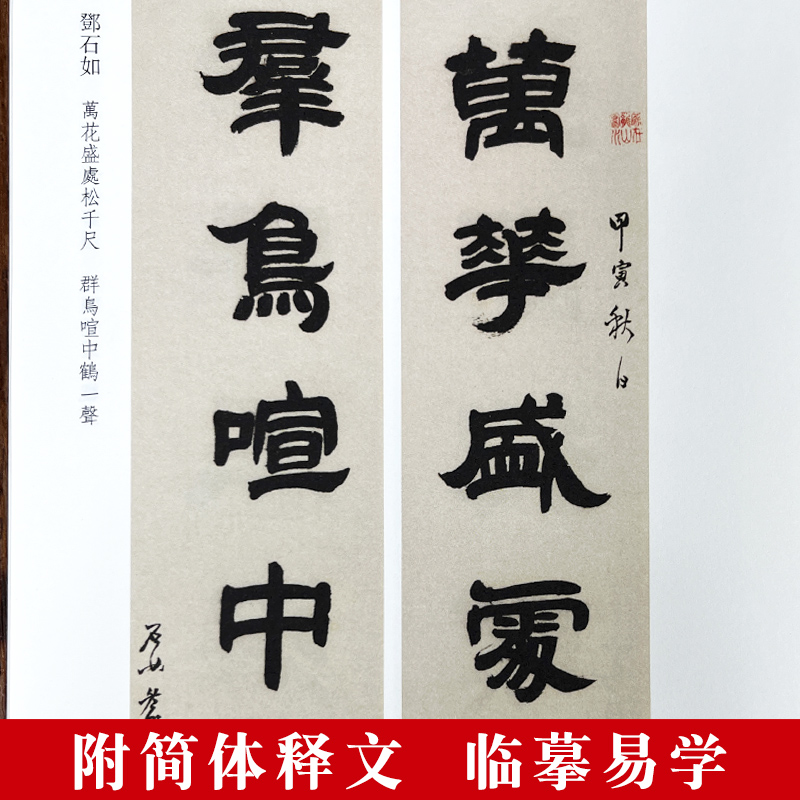 甲寅秋日
萬華盛處
羣鳥喧中
石如
鄧石如 萬花盛處松千尺 群鳥喧中鶴一聲
附简体释文 临摹易学